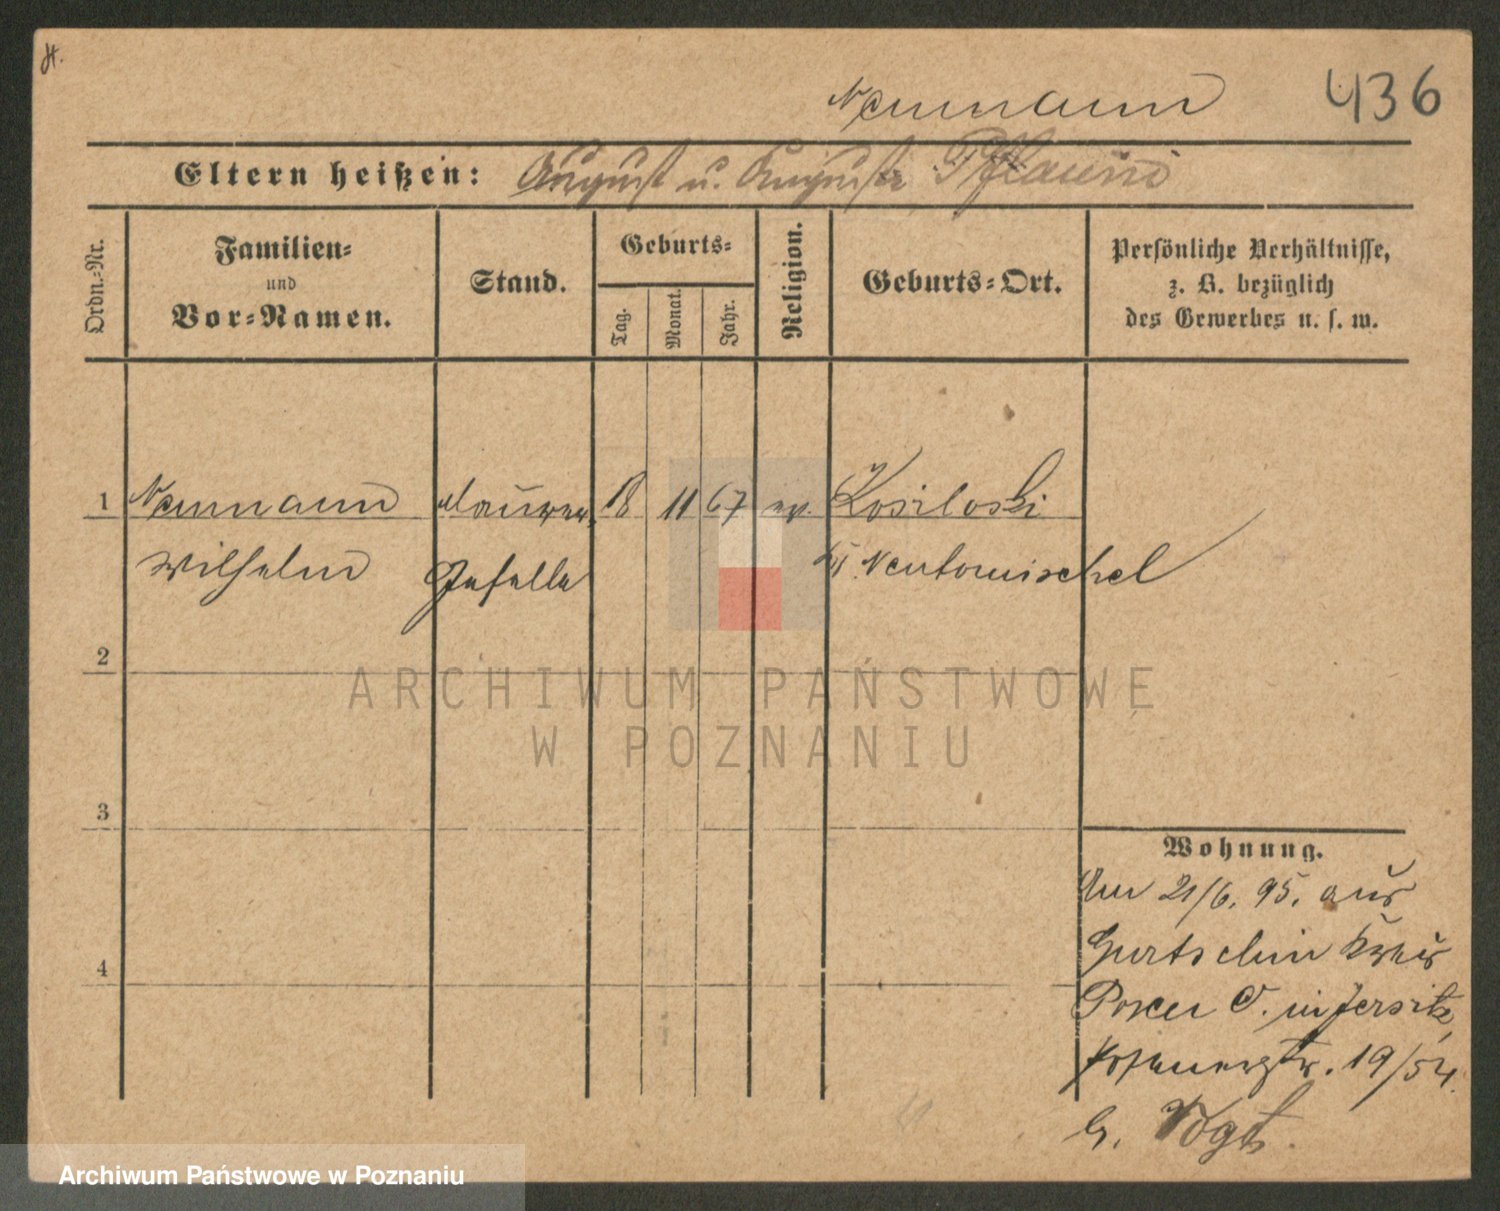 436
Neumann
Eltern heißen: August u. Auguste
Ordn.-Nr.
Familien-
und
Vor-Namen.
Stand.
Geburts-
Tag.
Monat.
Jahr.
Religion.
Geburts-Ort.
Persönliche Verhältnisse,
z. B. bezüglich
des Gewerbes u. s. w.
1 Neumann Maurer 18 11 67 ev. Kosiloski
Wilhelm Geselle Neutomischel
2
3
4
Wohnung.
Am 21/6. 95. aus
Gurtschin Kreis
Posen O. in Jersitz,
Posenerstr. 19/54.
b. Vogt.
ARCHIWUM PAŃSTWOWE
W POZNANIU
Archiwum Państwowe w Poznaniu